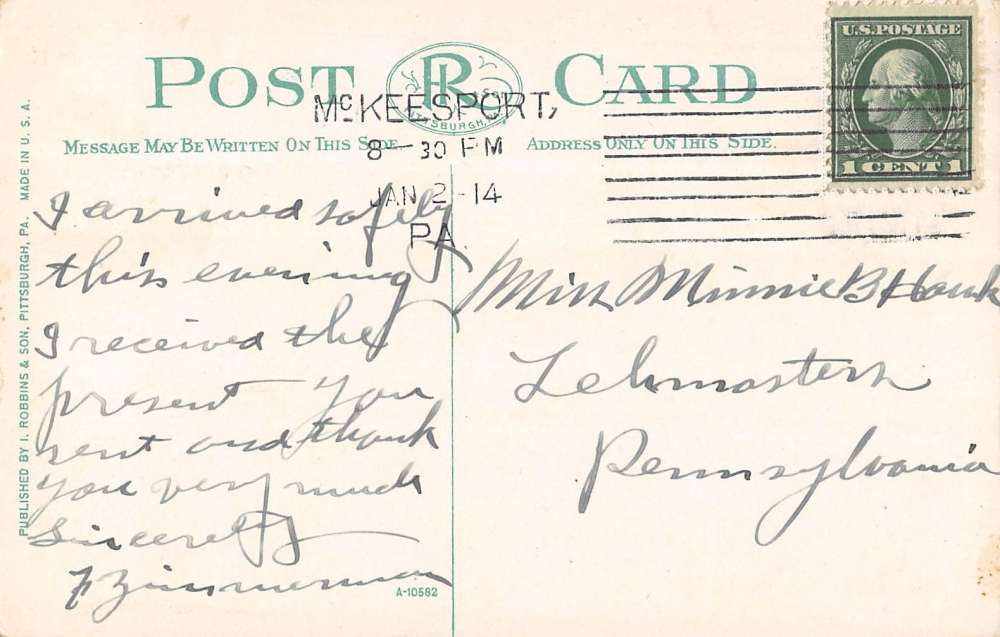 U.S. POSTAGE
1 CENT 1
POST CARD
PITTSBURGH,
McKEESPORT,
8-30 PM
JAN 2-14
PA.
MESSAGE MAY BE WRITTEN ON THIS SIDE.
ADDRESS ONLY ON THIS SIDE.
I arrived safely
this evening
I received the
present you
sent and thank
you very much
Sincerely
F Zimmerman
Miss Minnie B Hawk
Lehmasters
Pennsylvania
A-10582
PUBLISHED BY I. ROBBINS & SON, PITTSBURGH, PA. MADE IN U. S. A.